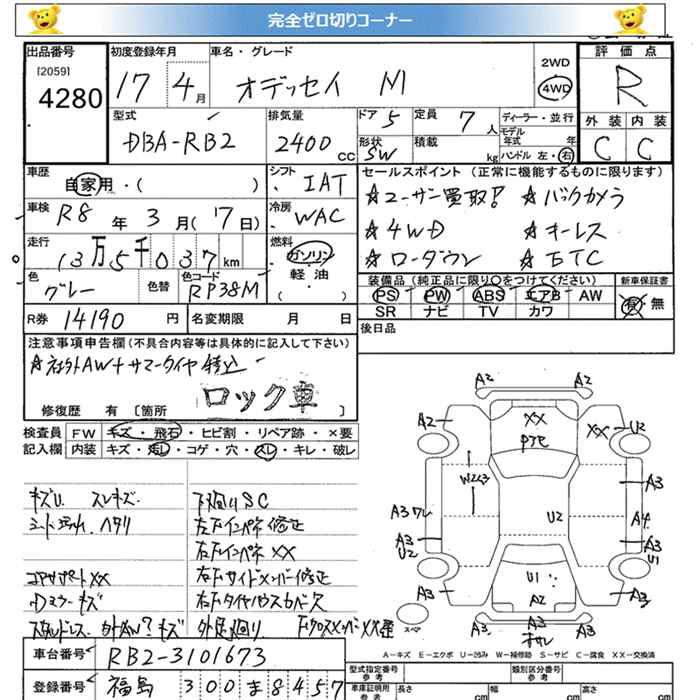 完全ゼロ切りコーナー
出品番号 初度登録年月 車名・グレード 評価点
[2059]
4280 17 4月 オデッセイ M 2WD 4WD R
型式 排気量 ドア 定員 ディーラー・並行 外装 内装
DBA-RB2 2400cc 5 7人 モデル年式 年 C C
形状 SW 積載 kg ハンドル 左・右
車歴 自家用・( ) シフト IAT セールスポイント(正常に機能するものに限ります)
☆ユーザー買取! ☆バックカメラ
車検 R8年3月(7日) 冷房 WAC ☆4WD ☆キーレス
走行 13万5千037km 燃料 ガソリン 軽油 ( ) ☆ローダウン ☆ETC
色 グレー 色替 色コード RP38M
装備品(純正品に限り○をつけてください) 新車保証書
PS PW ABS エアB AW 有・無
SR ナビ TV カワ
R券 14190円 名変期限 月 日 後日品
注意事項申告欄(不具合内容等は具体的に記入して下さい)
☆社外AW+サマータイヤ積込
ロック車
修復歴 有 [箇所 ]
検査員 FW キズ・飛石・ヒビ割・リペア跡・×要
記入欄 内装 キズ・汚レ・コゲ・穴・スレ・キレ・破レ
キズU スレキズ 下廻りSC
シート汚れ、ヘタリ 左フインパネ修正
右フインパネXX
コアサポートXX 右フサイドメンバー修正
Dミラーキズ 右フタイヤハウスカバー欠
スタッドレス 外AW?キズ 外足廻り 下クロスメンバーXX歪
A2 A2
A2 XX XX U2
W2 A3
A3ワレ U2 A4
A3 U2 A3 U1
A3 U1 A2 A3
スペア A3 A3 A3
A―キズ E―エクボ U―凹み W―補修跡 S―サビ C―腐食 XX―交換済
車台番号 RB2-3101673
登録番号 福島 300 ま 8457
型式指定番号 参考 類別区分番号 参考
車庫証明用 参考 長さ cm 幅 cm 高さ cm